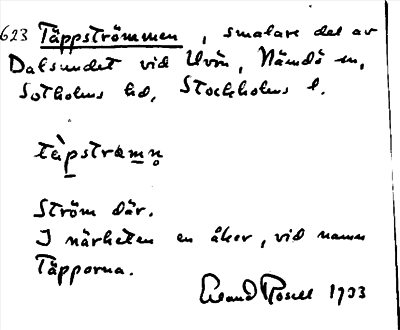 623 Täppströmmen, smalare del av
Dalsundet vid Uvön, Nämdö sn,
Sotholms hd, Stockholms l.
tàpstrəmn̥
Ström där.
I närheten en åker, vid namn
Täpporna.
Erland Rosell 1933